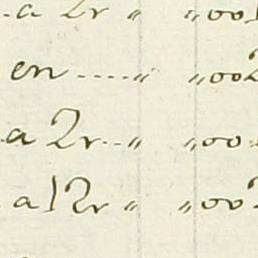 ..a 2r " "001
en ..... " "002
a 2r .. " "00
a 12r " "002